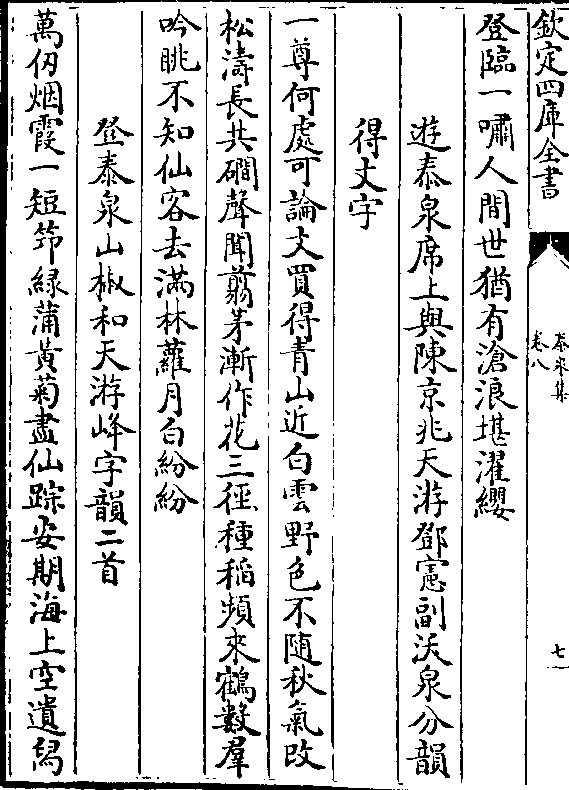 欽定四庫全書
泰泉集
卷八
七
登臨一嘯人間世猶有滄浪堪濯纓
遊泰泉席上與陳京兆天游鄧憲副沃泉分韻
得文字
一尊何處可論文買得青山近白雲野色不隨秋氣改
松濤長共磵聲聞翦茅漸作花三徑種稻頻來鶴數羣
吟眺不知仙客去滿林蘿月白紛紛
登泰泉山椒和天游峰字韻二首
萬仞烟霞一短笻緑蒲黃菊盡仙踪安期海上空遺舄